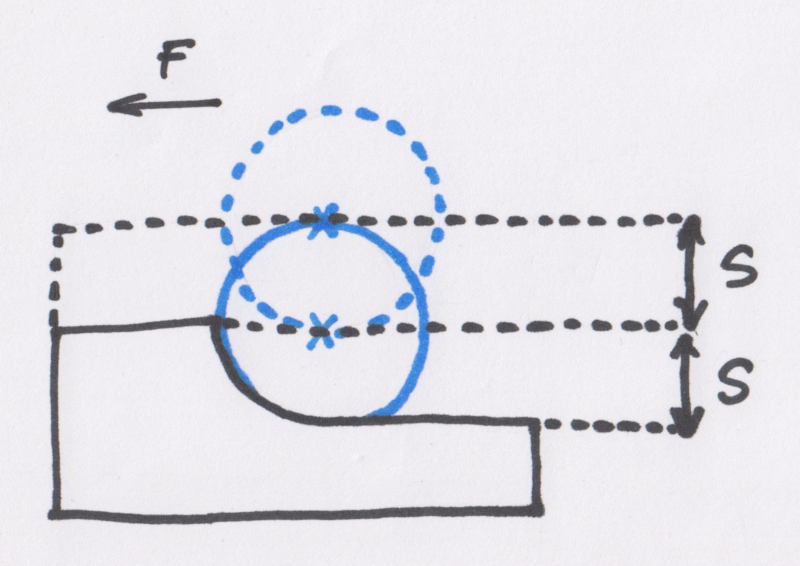 F
S
S